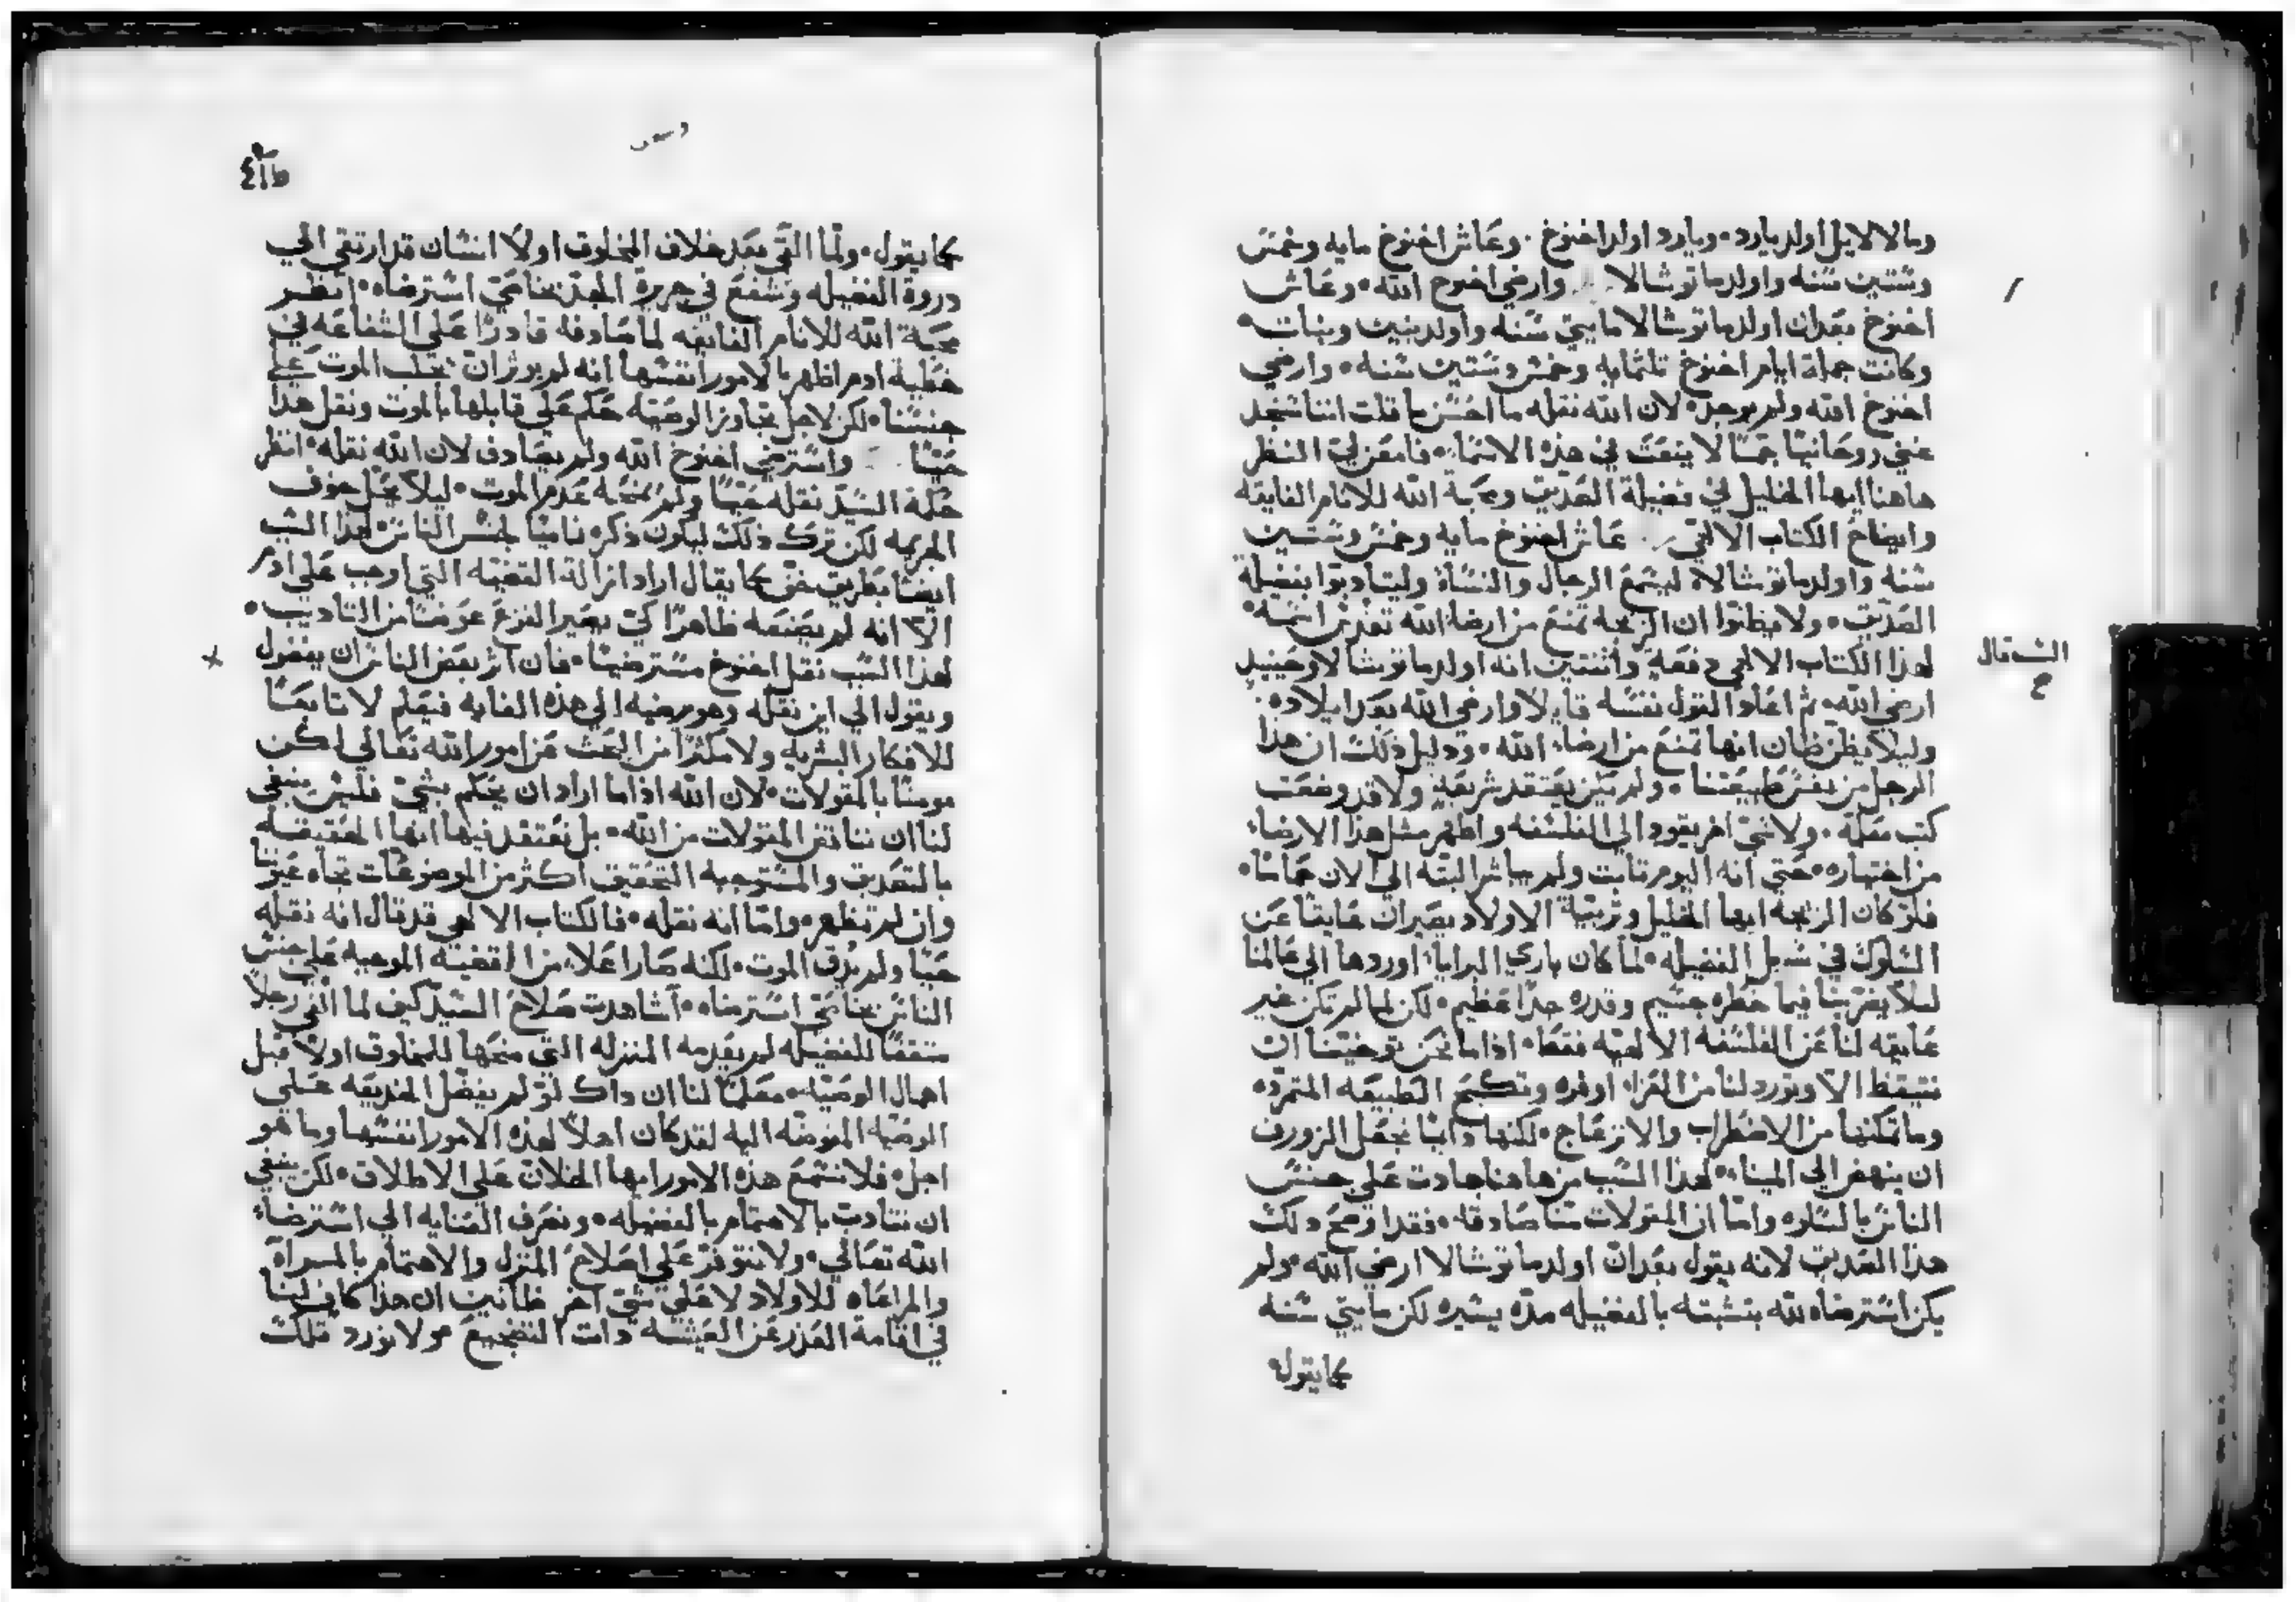 ومالالايل اولد يارد • ويارد اولد اخنوخ • وعاش اخنوخ مايه وخمس
وستين سنه واولد ماتوشالا وارضي اخنوخ الله • وعاش
اخنوخ بعد ان اولد ماتوشالا مايتي سنه واولد بنين وبنات •
وكانت جملة ايام اخنوخ تلثمايه وخمس وستين سنه • وارضي
اخنوخ الله ولم يوجد • لان الله نقله ما احسن ما قلت اننا سنجد
غني روحانيا جما لا ينعت في هذه الاسما • فامعن لي النظر
هاهنا ايها الخليل في فضيلة الصديق ومحبة الله للانام الفايقه
وايضاح الكتاب الالهي عاش اخنوخ مايه وخمس وستين
سنه واولد ماتوشالا ليسمع الرجال والنساء وليتادبوا بفضيلة
الصديق • ولا يظنوا ان الزيجه تمنع من ارضا الله
لهذا الكتاب الالهي دفعة واثنتين انه اولد ماتوشالا وحينيد
ارضي الله • ثم اعاد القول نفسه قايلا وارضي الله بعد ايلاده •
وليلا يظن ظان انها تمنع من ارضاء الله • ودليل ذلك ان هذا
الرجل من نفس طبيعتنا • ولم يكن يعتقد شريعة ولا قد وضعت
كتب مقله • ولا شي اخر يقود الي الفلسفه واظهر مثل هذا الارضاء
من اختياره • حتي انه اليوم تابت ولم يباشر البته الي الان حماما •
فلو كان الزيجه ايها الخليل وتربية الاولاد يصيران عايقا عن
السلوك في سبل الفضيله • لما كان باري البرايا اوردها الي عالمنا
ليلا يضر بنا فيما خطره جسيم وقدره جدا عظيم • لكن لما لم تكن غير
عايقه لنا عن الفلسفه الالهيه فقط • اذا ما نحن توخينا ان
نتيقظ الا وتورد لنا من العزاء اوفره وتكبح الطبيعه المتمرده
وما تمكنها من الاضطراب والانزعاج • لكنها دايما تجعل الزورق
ان ينهض الي المينا • لهذا السبب من هاهنا جادت علي جنس
الناس بالسلوه واما ان المقولات منا صادقه • فقد اوضح دلك
هذا الصديق لانه يقول بعد ان اولد ماتوشالا ارضي الله • ولم
يكن استرضاه لله بتشبته بالفضيله مده يسيره لكن مايتي سنه
كما يقول
السـ قال
ح
كما يقول • ولما القي بعد خلاف المخلوق اولا انسان قد ارتقي الي
دروة الفضيله وشفع في جريرة المجد بمناحي استرضاه • انظر
محبة الله للانام الفايقه لما صادفه قادرا علي الشفاعه في
خطية ادم اظهر بالامور نفسها انه لم يوثر ان يجلب الموت علي
جنسنا • لكن لاجل تجاوز الوصيه حكم علي قابلها بالموت ونقل هذا
حيا واسترضي اخنوخ الله ولم يصادف لان الله نقله • انظر
حكمة السيد نقله حيا ولم يمنحه عدم الموت • ليلا يحل خوف
الجريمه لكن ترك ذلك ليكون ذكره ناميا لجنس الناس لهذا السبب
ايضا بطريق خفي كما يقال اراد ازالة القضيه التي اوجب علي ادم
الا انه لم يصنعه ظاهرا كي يصير الفزع عوضا من التاديب •
لهذا السبب نقل اخنوخ مسترضيا • فان اثر بعض الناس ان يفضول
ويقول الي اين نقله وهو مرضيه الي هذه الغايه فيعلم لا تابعا
للافكار البشريه ولا مكثرا من البحث عن امور الله تعالي لكن
مومنا بالمقولات • لان الله اذا ما اراد ان يحكم بشي فليس ينبغي
لنا ان نناقض المقولات من الله • بل نعتقد فيها انها الحقيقه
بالتصديق والمستوجبه التحقيق اكثر من الموضوعات تجاه عيوننا
وان لم تظهر • واما انه نقله • فالكتاب الالهي قد قال انه نقله
حيا ولم يذق الموت • لكنه صار اعلا من القضيه الموجبه علي جنس
الناس بمناحي استرضاه • اشاهدت صلاح السيد كيف لما القي رجلا
متقفا للفضيله لم يعدمه المنزله التي منحها للمخلوق اولا قبل
اهمال الوصيه • معلما لنا ان داك لو لم يفضل الخديعه علي
الوصيه المفوضه اليه لقد كان اهلا لهذه الامور نفسها وما هو
اجل • فلا نسمع هذه الامور ايها الخلان علي الاطلاق • لكن ينبغي
ان نتادب بالاهتمام بالفضيله • ونصرف العنايه الي استرضاء
الله تعالي • ولا نتوفر علي اصلاح المنزل والاهتمام بالمراه
والمراعاه للاولاد لا علي شي اخر ظانين ان هذا كاف لنا
في اقامة العذر عن العيشه دات التضجيع • ولا نورد تلك